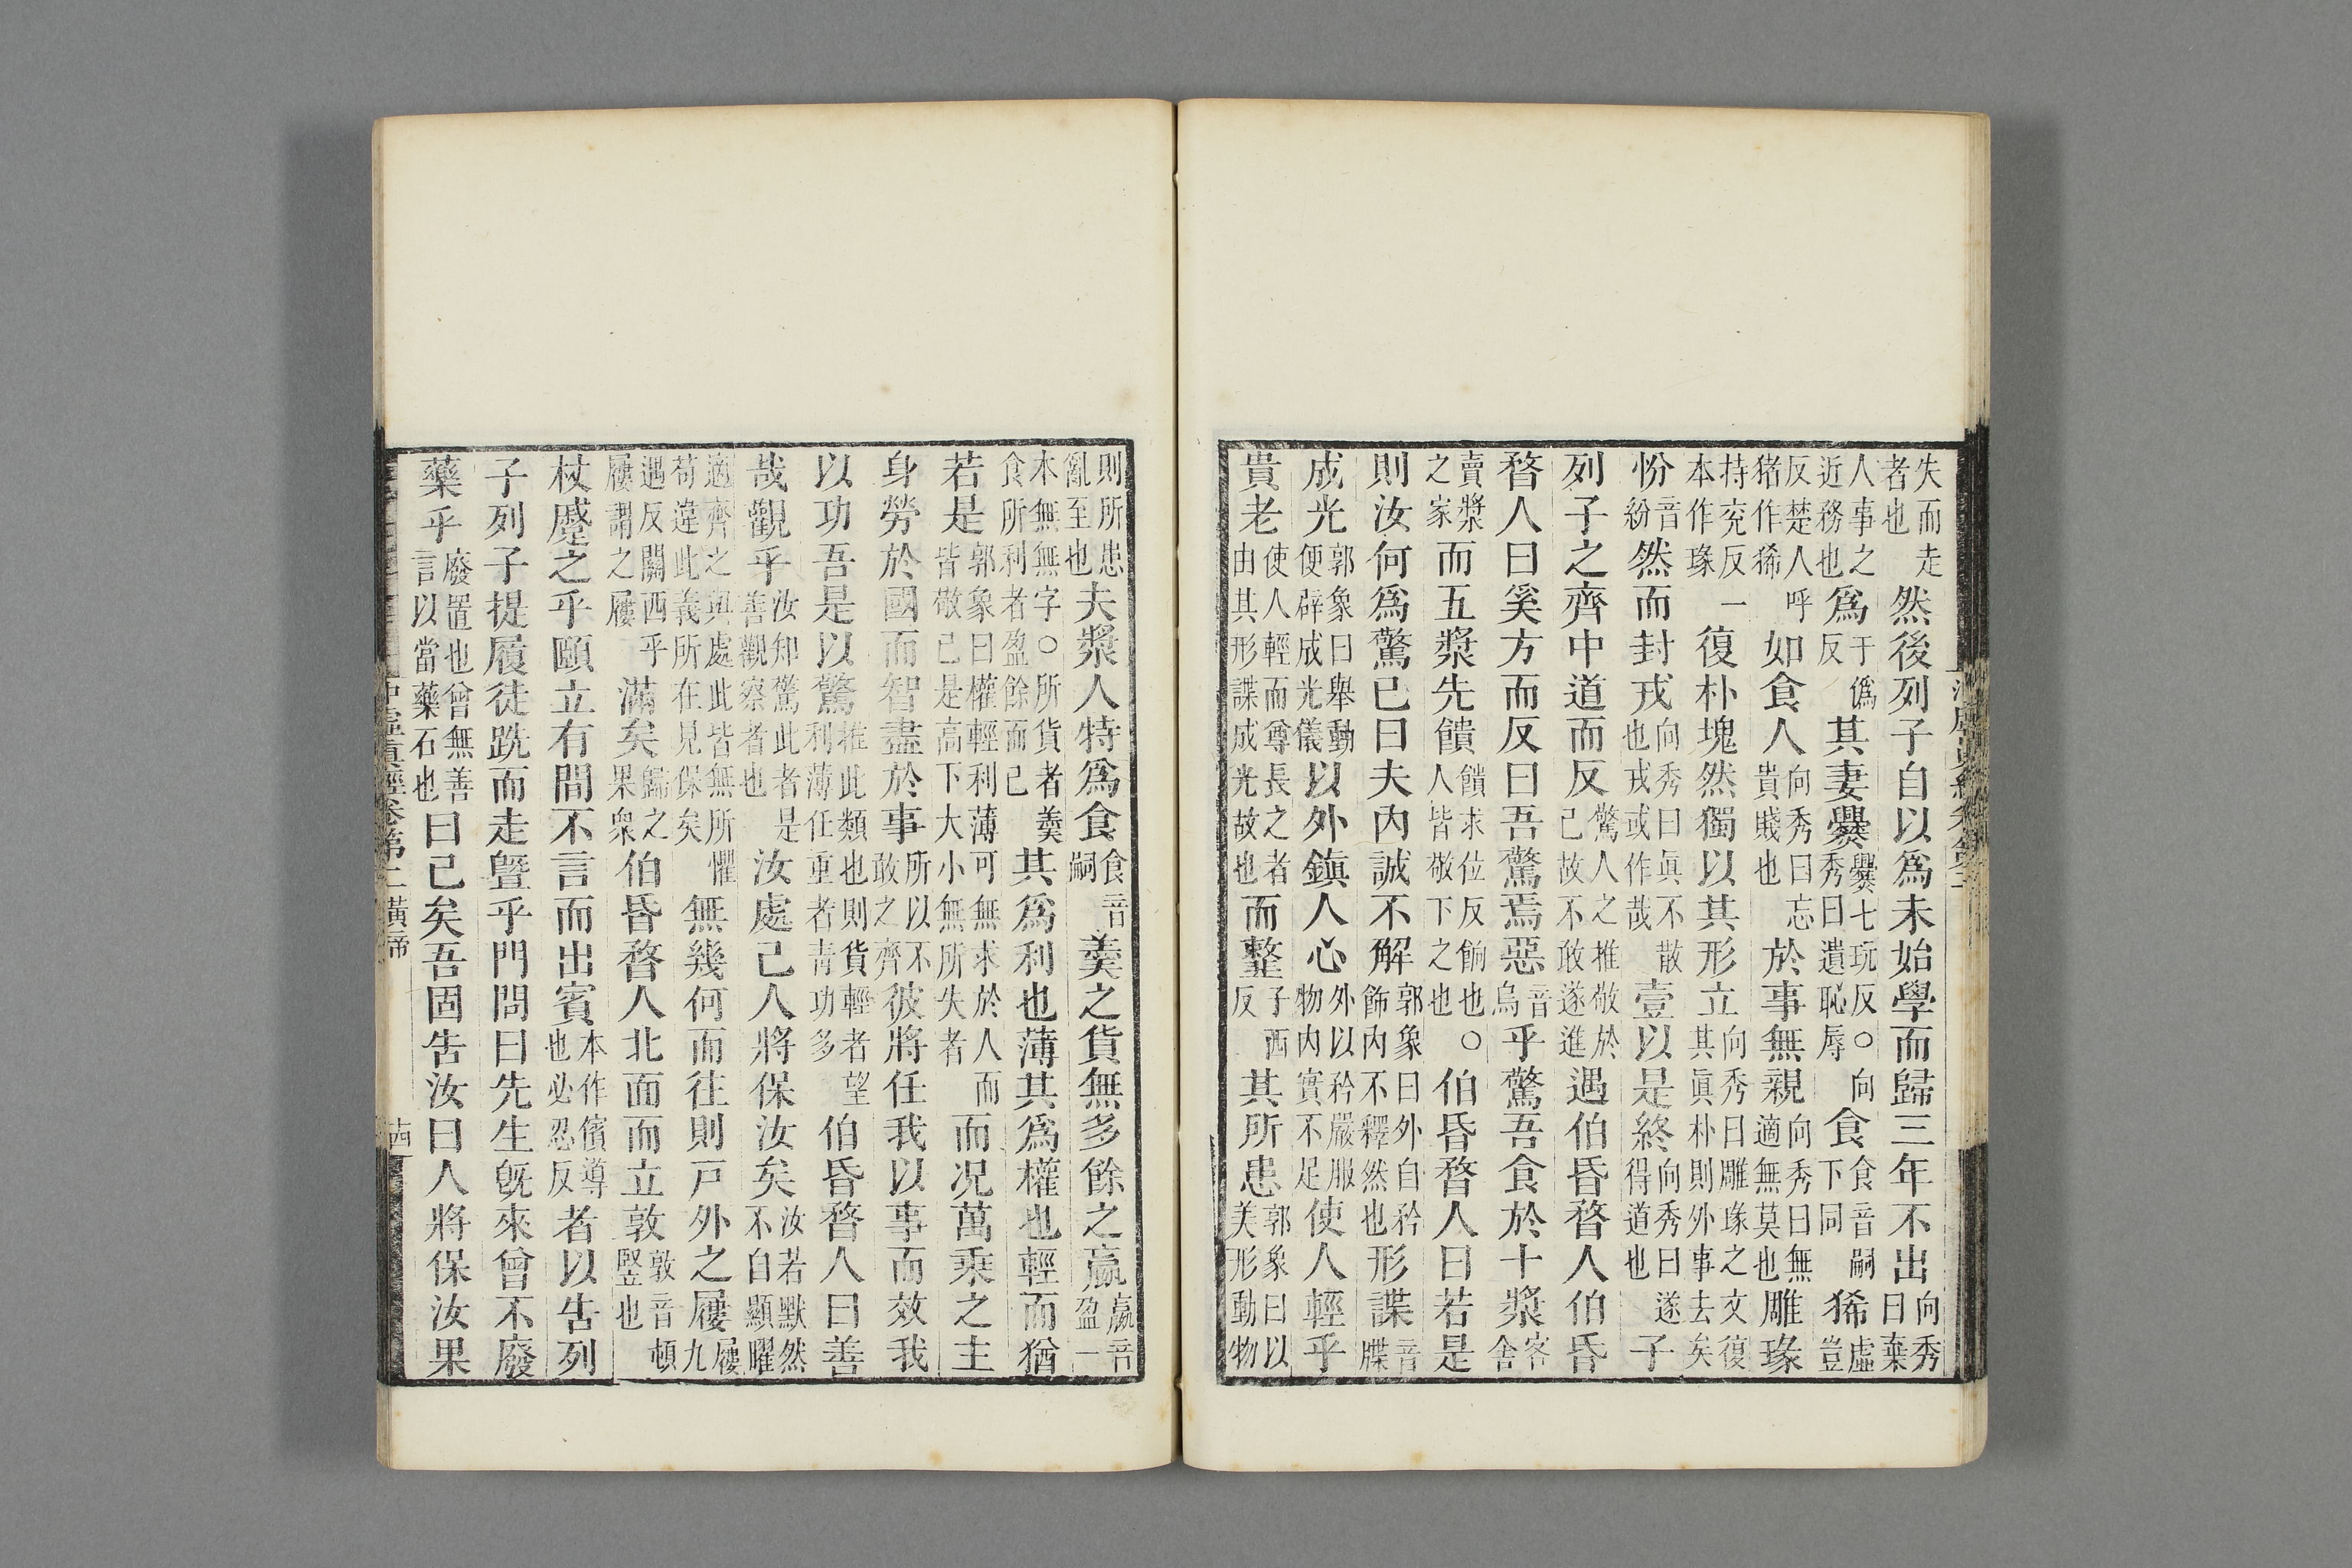 失而走者也然後列子自以爲未始學而歸三年不出向秀曰棄
人事之近務也爲于僞反其妻爨爨七玩反○向秀曰遺恥辱食食音嗣下同狶虛豈
反楚人呼猪作狶如食人向秀曰忘貴賤也於事無親向秀曰無適無莫也雕瑑
持兖反一本作瑑復朴塊然獨以其形立向秀曰雕瑑之文復其眞朴則外事去矣
㤋音紛然而封戎向秀曰眞不散也戎或作哉壹以是終向秀曰遂得道也子
列子之齊中道而反驚人之推敬於己故不敢遂進遇伯昏瞀人伯昏
瞀人曰奚方而反曰吾驚焉惡音烏乎驚吾食於十漿客舍
賣漿之家而五漿先饋饋求位反餉也○人皆敬下之也伯昏瞀人曰若是
則汝何爲驚已曰夫內誠不解郭象曰外自矜飾內不釋然也形諜音牒
成光郭象曰舉動便辟成光儀以外鎮人心外以矜嚴服物內實不足使人輕乎
貴老使人輕而尊長之者由其形諜成光故也而䪠子西反其所患郭象曰以美形動物
則所患亂至也夫漿人特爲食食音嗣羹之貨無多餘之贏贏音盈一
本無無字○所貨者羹食所利者盈餘而已其爲利也薄其爲權也輕而猶
若是郭象曰權輕利薄可無求於人而皆敬己是高下大小無所失者而况萬乗之主
身勞於國而智盡於事所以不敢之齊彼將任我以事而效我
以功吾是以驚推此類也則貨輕者望利薄任重者責功多伯昏瞀人曰善
哉觀乎汝知驚此者是善觀察者也汝處己人將保汝矣汝若默然不自顯曜
適齊之與處此皆無所懼苟違此義所在見保矣無幾何而往則戸外之屨屨九
遇反關西乎屨謂之屨滿矣歸之果衆伯昏瞀人北面而立敦敦音頓竪也
杖蹙之乎頤立有間不言而出賓本作儐導也必忍反者以吿列
子列子提履徒跣而走曁乎門問曰先生旣來曾不廢
藥乎廢置也曾無善言以當藥石也曰已矣吾固吿汝曰人將保汝果
虛眞經卷第二 黃帝